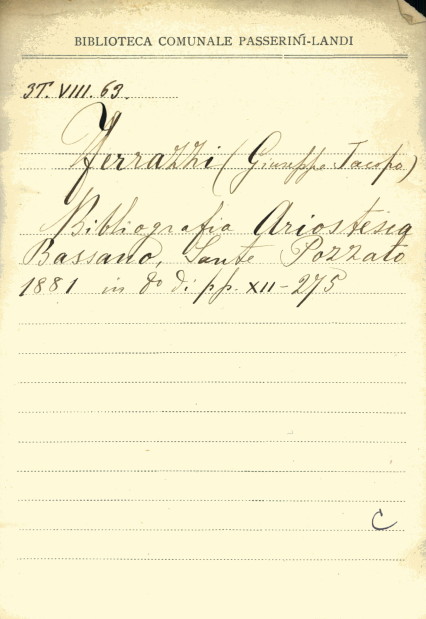 BIBLIOTECA COMUNALE PASSERINI-LANDI
3T. VIII. 63.
Ferrazzi (Giuseppe Jacopo)
Bibliografia Ariostesca
Bassano, Sante Pozzato
1881 in 8º di pp. XII-275
C